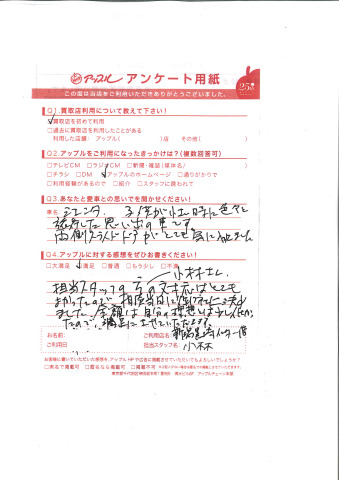 アップル アンケート用紙
この度は当店をご利用いただきありがとうございました。
25周年
Q1.買取店利用について教えて下さい!
☑買取店を初めて利用
□過去に買取店を利用したことがある
利用した店舗: アップル( )店 その他( )
Q2.アップルをご利用になったきっかけは?(複数回答可)
□テレビCM □ラジオCM □新聞・雑誌(媒体名/ )
□チラシ □DM ☑アップルのホームページ □通りがかりで
□利用経験があるので □紹介 □スタッフに誘われて
Q3.あなたと愛車との思い出をお聞かせください!
車名 シエンタ 子供が小さい時に色々と
旅をした思い出の車です。
両側スライドドアがとても気に入ってました
Q4.アップルに対する感想をぜひお書きください!
□大満足 ☑満足 □普通 □もう少し □不満
小林さん
担当スタッフの方の対応はとても
よかったので
ました。金額は自分の理想より少し
たので、満足にさせていただきます。
お名前:
ご利用店名:
ご利用日
担当スタッフ名: 小林
お客様に書いていただいた感想を、アップルHPや広告に掲載させていただいてもよろしいでしょうか?
□実名で掲載可 □匿名なら掲載可 □掲載不可